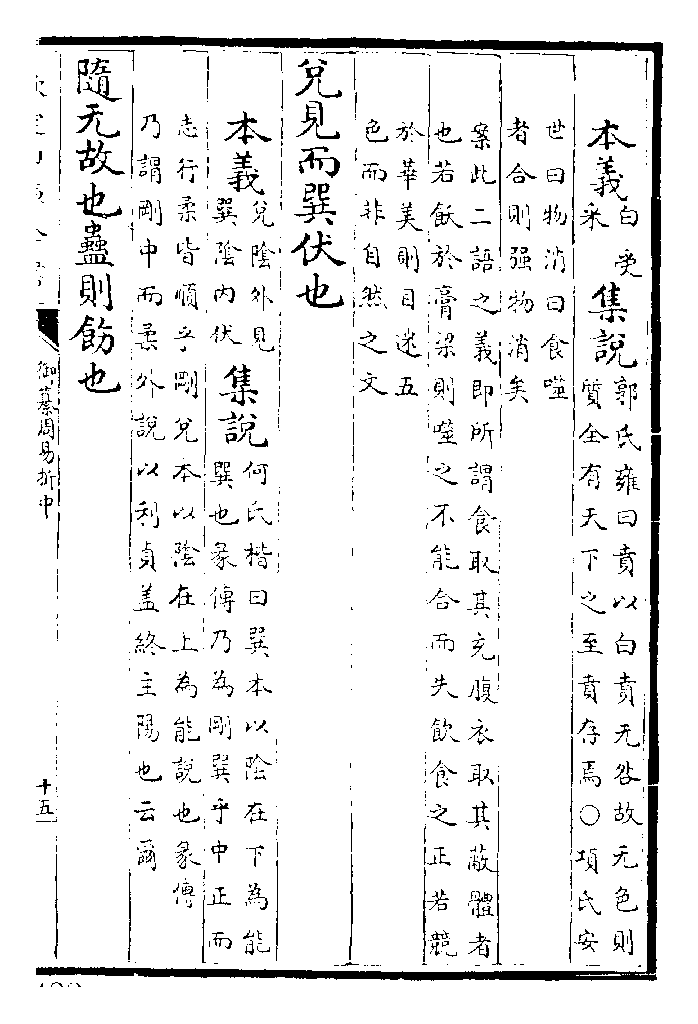 本義白受
采集說郭氏雍曰賁以白賁无咎故无色則
質全有天下之至賁存焉○項氏安
世曰物消曰食噬
者合則强物消矣
案此二語之義即所謂食取其充腹衣取其蔽體者
也若飫於膏粱則噬之不能合而失飲食之正若競
於華美則目迷五
色而非自然之文
兌見而巽伏也
本義兌陰外見
巽陰内伏集說何氏楷曰巽本以陰在下為能
巽也彖傳乃為剛巽乎中正而
志行柔皆順乎剛兌本以陰在上為能說也彖傳
乃謂剛中而柔外說以利貞蓋終主陽也云爾
隨无故也蠱則飭也
御纂周易折中
十五